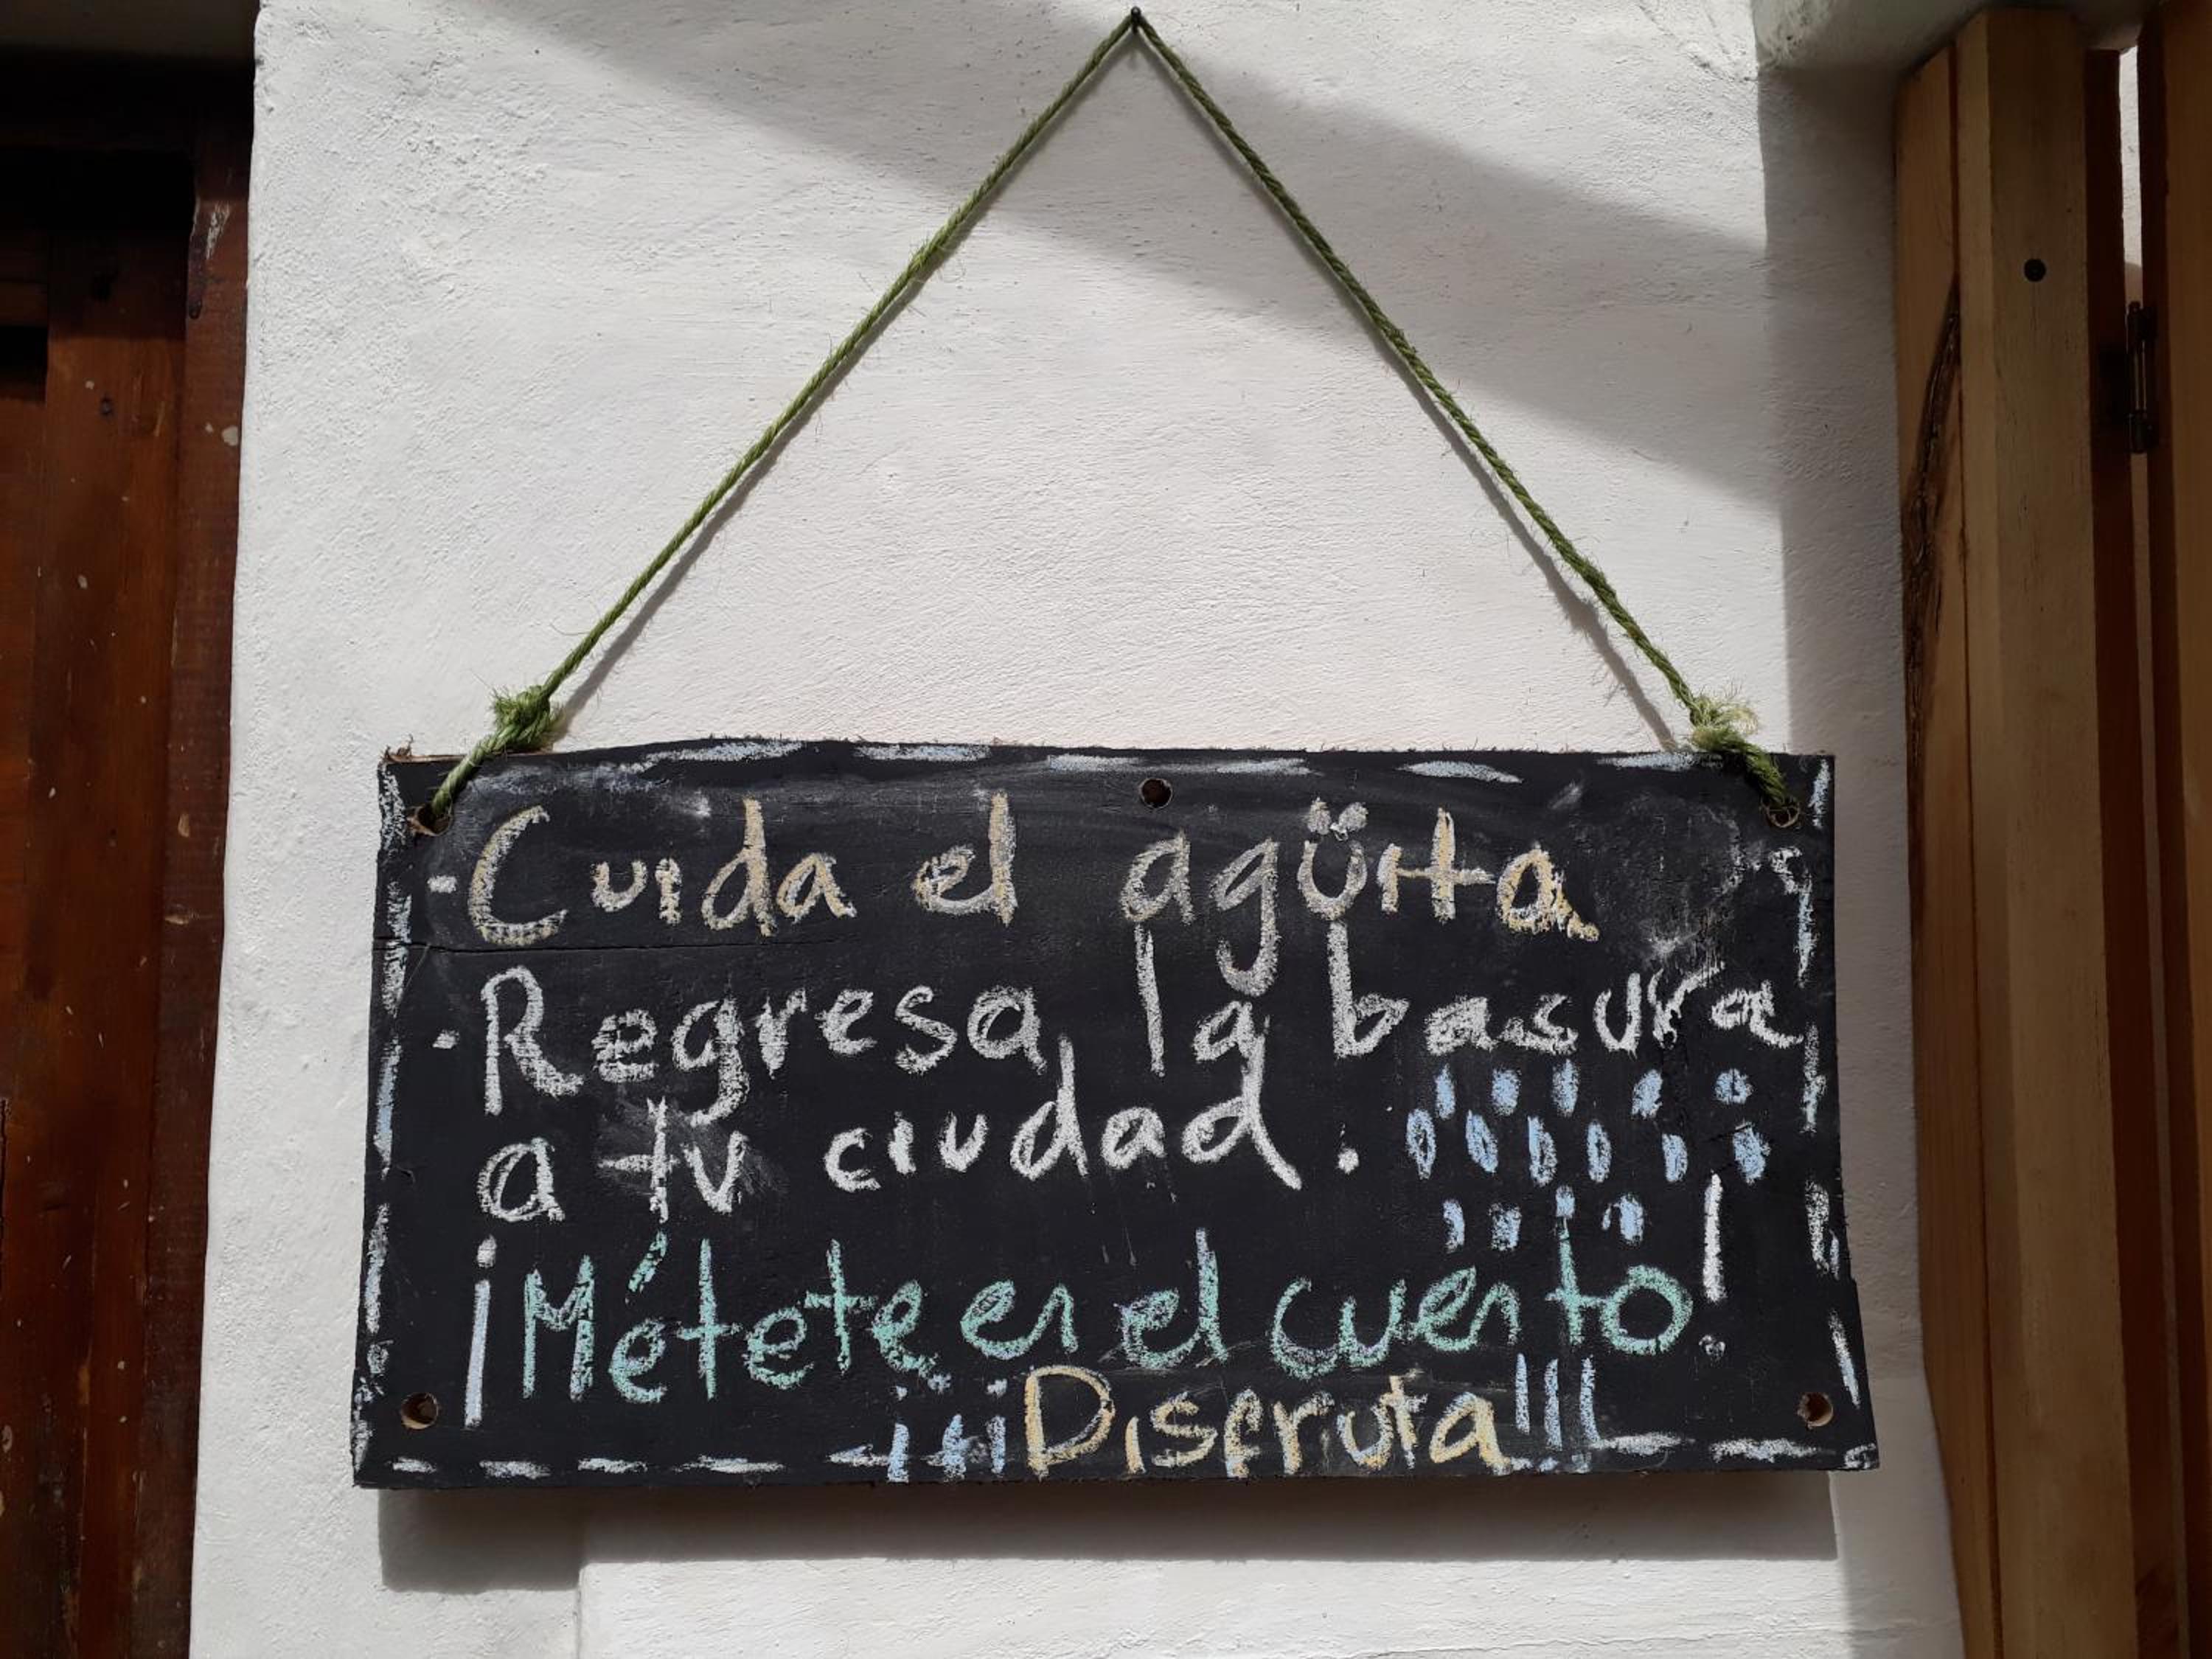 - Cuida el agüita
· Regresa la basura
a tu ciudad.
¡Métete en el cuento!
¡¡¡Disfruta!!!